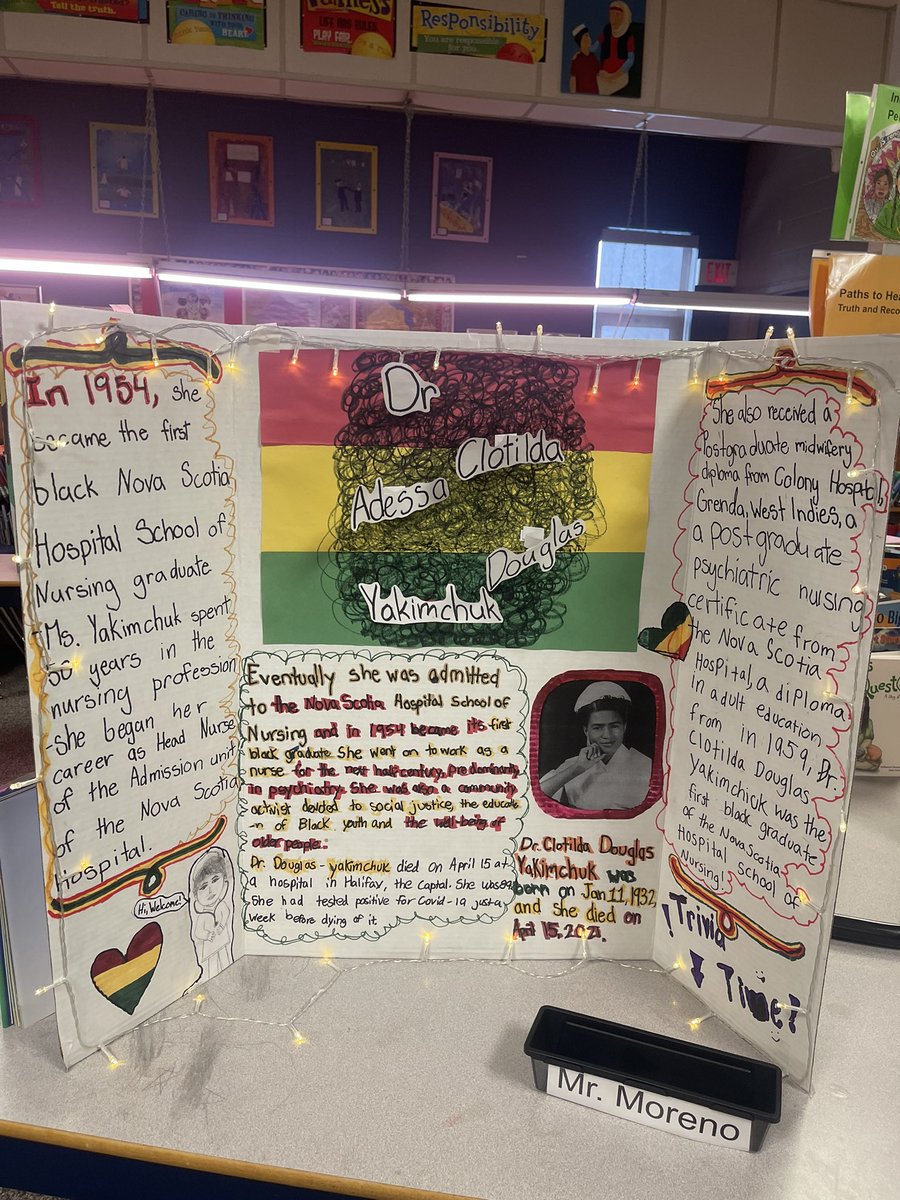 Tell the truth.
CARING IS THINKING
WITH YOUR HEART
LIFE HAS RULES.
PLAY FAIR.
Responsibility
You are responsible
for you.
EXIT
Paths to
Truth and
In 1954, she
became the first
black Nova Scotia
Hospital School of
Nursing graduate
-Ms. Yakimchuk spent
50 years in the
nursing profession
-She began her
career as Head Nurse
of the Admission unit
of the Nova Scotia
Hospital.
Hi, Welcome!
Dr
Clotilda
Adessa
Douglas
Yakimchuk
Eventually she was admitted
to the Nova Scotia Hospital School of
Nursing and in 1954 became its first
black graduate. She went on to work as a
nurse for the next half-century, predominantly
in psychiatry. She was also a community
activist devoted to social justice, the educate
n of Black youth and the well-being of
older people.
Dr. Douglas-yakimchuk died on April 15 at
a hospital in Halifav, the Captal. She was 89
She had tested positive for Covid-19 just a
week before dying of it.
Dr. Clotilda Douglas
Yakimchuk was
born on Jan 11, 1932,
and she died on
April 15, 2021.
She also received a
Postgraduate midwifery
diploma from Colony Hospital,
Grenda, West Indies, a
a postgraduate
psychiatric nursing
certificate from
the Nova Scotia
Hospital, a diploma
in adult education,
from in 1959, Dr.
Clotilda Douglas
Yakimchick was the
first black graduate
of the Nova Scotia
Hospital School of
Nursing!
!Trivia
Time!
Mr. Moreno